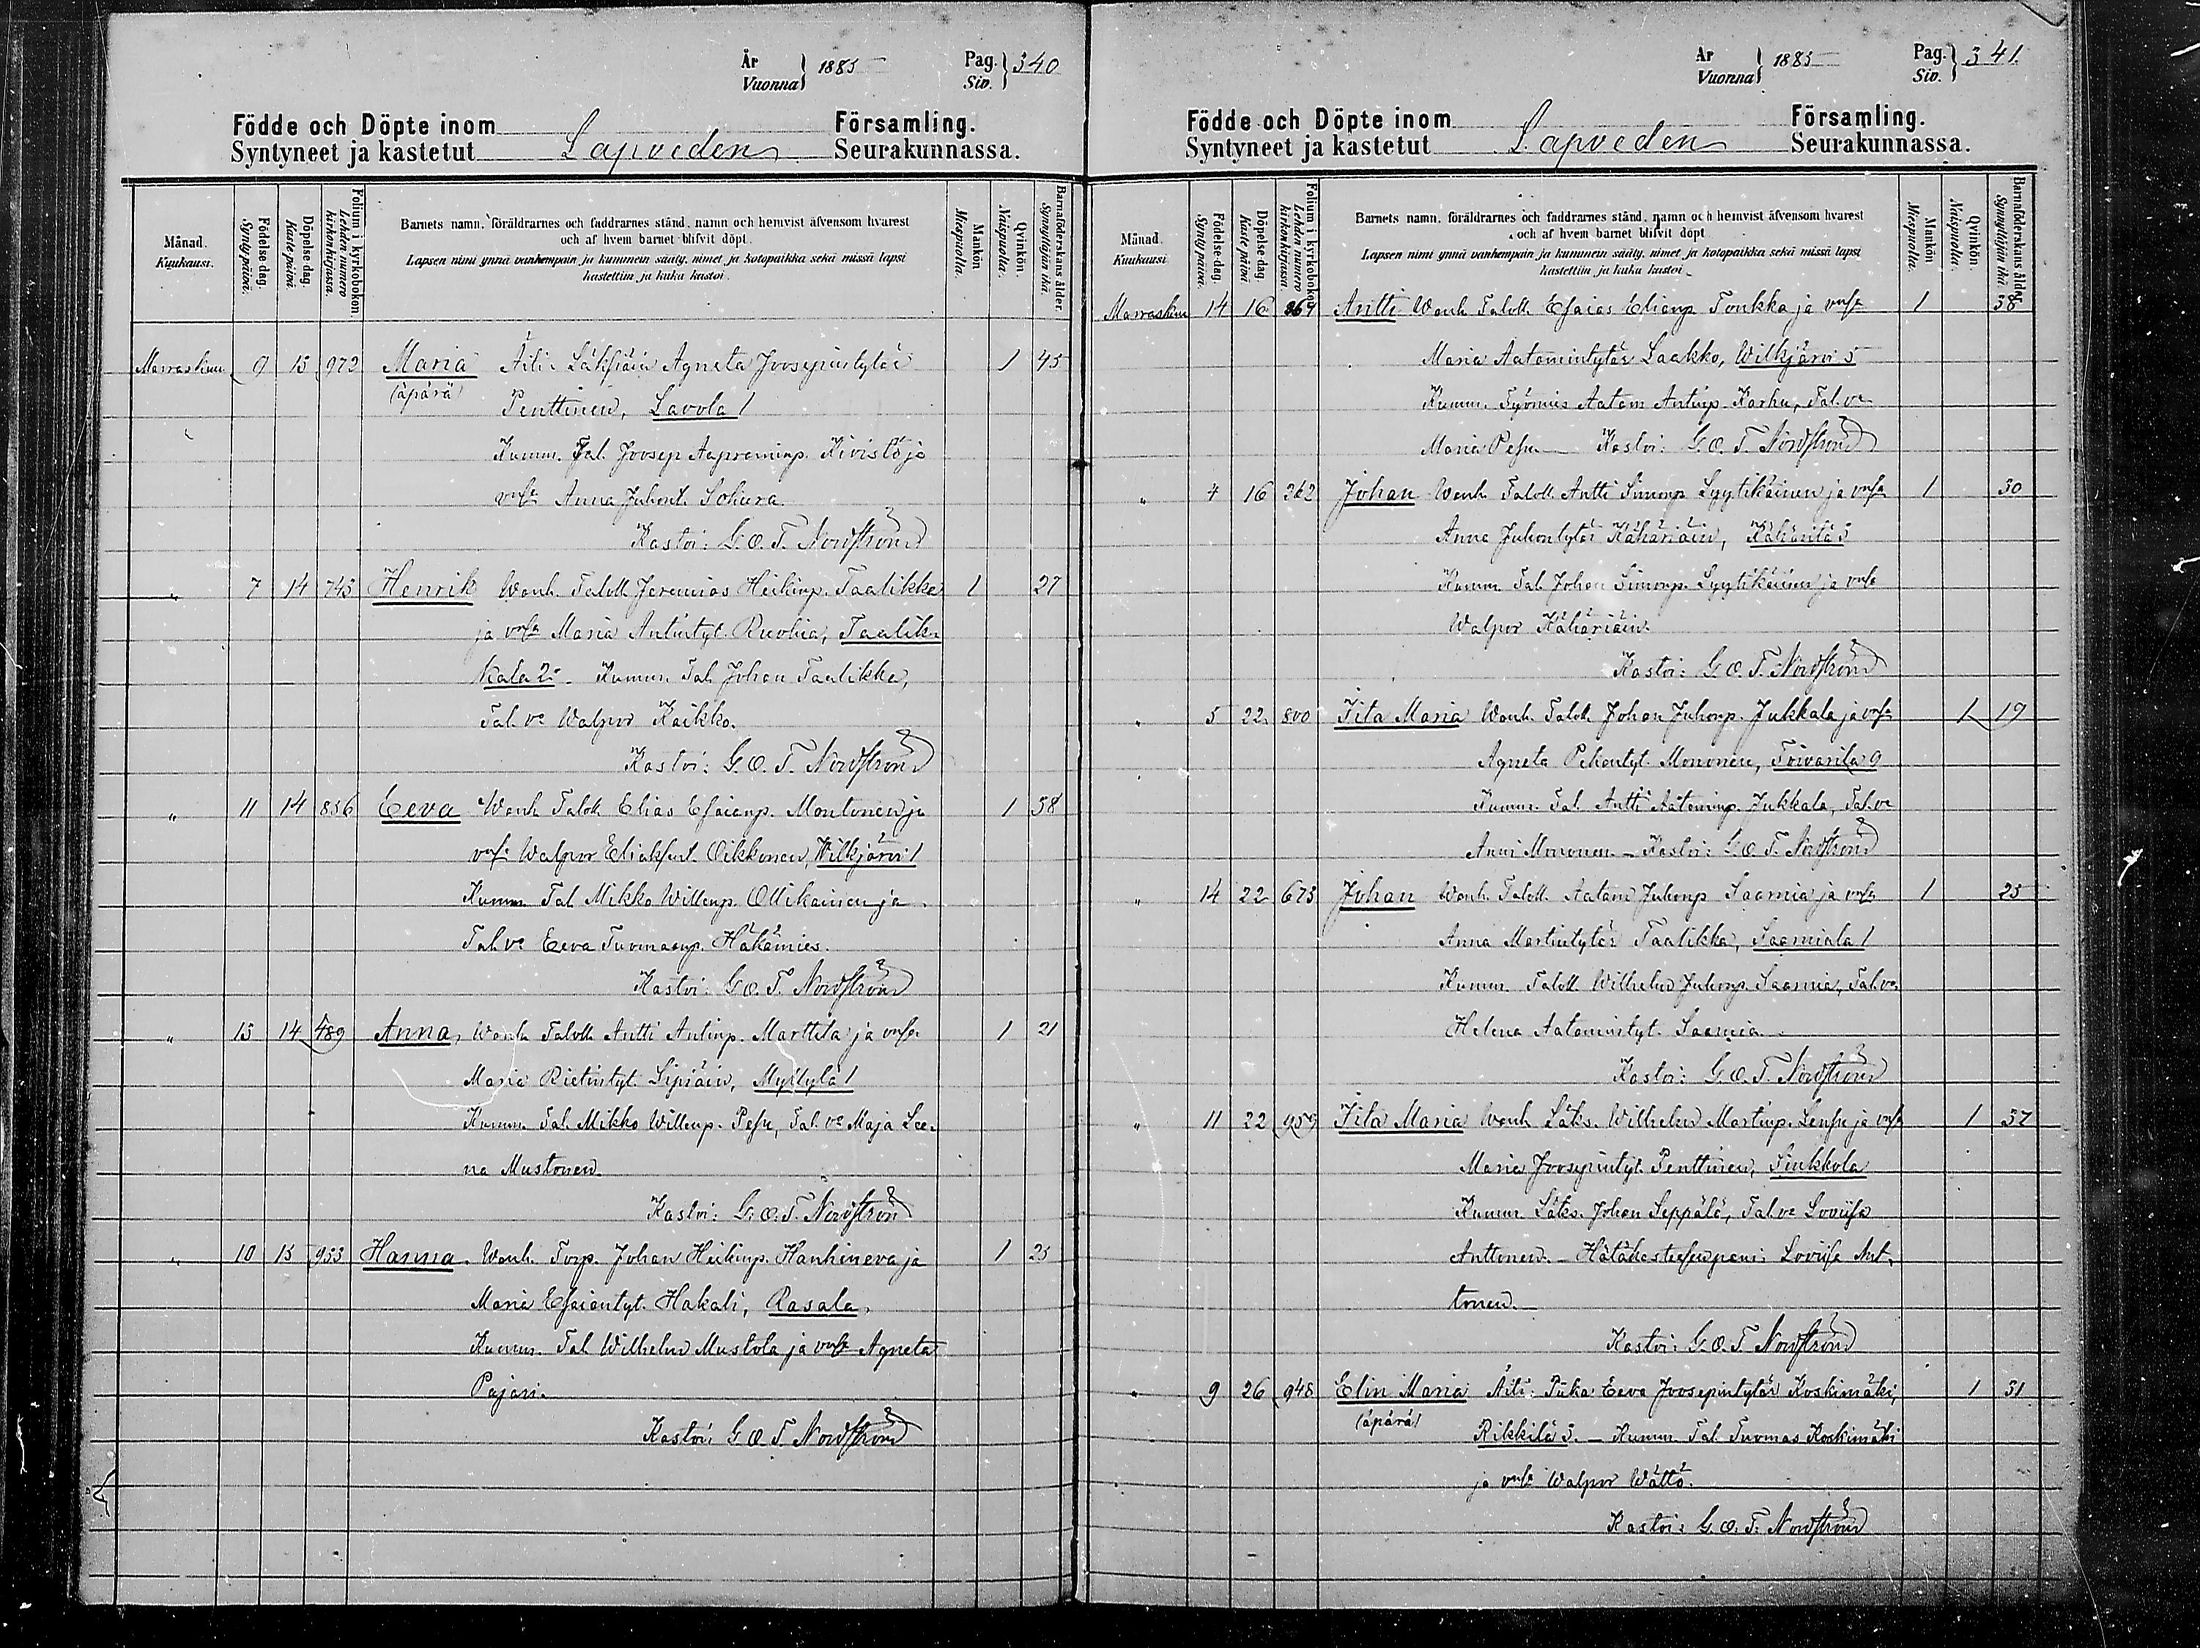 År
Vuonna } 1885 Pag.
Siv. } 340
Födde och Döpte inom
Syntyneet ja kastetut Lapveden Församling.
Seurakunnassa.
Månad.
Kuukausi.
Födelse dag.
Synty päivä.
Döpelse dag.
Kaste päivä
Folium i kyrkoboken.
Lehden numero
kirkonkirjassa.
Barnets namn, föräldrarnes och faddrarnes stånd, namn och hemvist äfvensom hvarest
och af hvem barnet blifvit döpt.
Lapsen nimi ynnä vanhempain ja kummein sääty, nimet ja kotopaikka sekä missä lapsi
kastettiin ja kuka kastoi.
Mankön
Miespuolia.
Qvinkön.
Naispuolia.
Barnaföderskans ålder.
Synnyttäjän ikä.
Marraskuu 9 15 972 Maria Äiti: Agneta Joosepintytär 1 45
(äpärä) Penttinen, Lavola 1
Kumm. Tal. Joosep Aapraminp. Kivistö ja
vmo Anna Juhont. Sohura
Kastoi: G. O. T. Nordström
" 7 14 743 Henrik Wanh. Taloll. Jeremias Heikinp. Taalikka 1 27
ja vmo Maria Antintyt. Ruohia, Taalik-
kala 2. Kumm. Tal. Johan Taalikka,
Tal. vo Walpor Kaikko.
Kastoi: G. O. T. Nordström
" 11 14 856 Eeva Wanh. Taloll. Elias Esaianp. Montonen ja 1 38
vmo Walpor Oikkonen, Wilkjärvi 1
Kumm. Tal. Mikko Willenp. Ollikainen ja
Tal. vo Eeva Tuomaanp. Häkämies.
Kastoi: G. O. T. Nordström
" 13 14 489 Anna, Wanh. Taloll. Antti Antinp. Marttila ja vmo 1 21
Maria Rietintyt. Sipiäin, Myllylä 1
Kumm. Tal. Mikko Willenp. Pesu, Tal. vo Maja Lee-
na Mustonen.
Kastoi: G. O. T. Nordström
" 10 15 953 Hanna. Wanh. Torp. Johan Heikinp. Hanhineva ja 1 25
Maria Esaiantyt. Hakali, Rasala.
Kumm. Tal. Wilhelm Mustola ja vmo Agneta
Pajari.
Kastoi: G. O. T. Nordström
År
Vuonna } 1885 Pag.
Siv. } 341.
Födde och Döpte inom
Syntyneet ja kastetut Lapveden Församling.
Seurakunnassa.
Månad.
Kuukausi.
Födelse-dag.
Synty päivä.
Döpelse dag.
Kaste päivä
Folium i kyrkoboken.
Lehden numero
kirkonkirjassa.
Barnets namn, föräldrarnes och faddrarnes stånd, namn och hemvist äfvensom hvarest
och af hvem barnet blifvit döpt.
Lapsen nimi ynnä vanhempain ja kummein sääty, nimet ja kotopaikka sekä missä lapsi
kastettiin ja kuka kastoi.
Mankön
Miespuolia.
Qvinkön.
Naispuolia.
Barnaföderskans ålder.
Synnyttäjän ikä.
Marraskuu 14 16 869 Antti Wanh. Taloll. Esaias Elianp. Toukka ja vmo 1 38
Maria Aatamintytär Laakko, Wilkjärvi 5
Kumm. Työmies Aatam Antinp. Karhu, Tal. vo
Maria Pesu. Kastoi: G. O. T. Nordström
" 4 16 262 Johan Wanh. Taloll. Antti Simonp. Lyytikäinen ja vmo 1 30
Anna Juhontytär Kähäriäin, Kähärilä 3
Kumm. Tal. Johan Simonp. Lyytikäinen ja vmo
Walpor Kähäriäin.
Kastoi: G. O. T. Nordström
" 5 22 800 Iita Maria Wanh. Taloll. Johan Juhonp. Jukkala ja vmo 1 19
Agneta Pekantyt. Mononen, Toivarila 9
Kumm. Tal. Antti Aataminp. Jukkala, Tal. vo
Anni Mononen. – Kastoi: G. O. T. Nordström
" 14 22 673 Johan Wanh. Taloll. Aatam Juhonp. Saamia ja vmo 1 25
Anna Martintytär Taalikka, Saamiala 1
Kumm. Taloll. Wilhelm Juhonp. Saamia, Tal. vo
Helena Aatamintyt. Saamia.
Kastoi: G. O. T. Nordström
" 11 22 959 Iita Maria Wanh. Läks. Wilhelm Martinp. Lensu ja vmo 1 37
Maria Joosepintyt. Penttinen, Sinkkola
Kumm. Läks. Johan Seppälä, Tal. vo Loviisa
Anttonen. – Hätäkasteesen pani: Loviisa Ant-
tonen.
Kastoi: G. O. T. Nordström
" 9 26 948 Elin Maria Äiti: Piika Eeva Joosepintytär Koskimäki, 1 31
(äpärä) Rikkilä 3. – Kumm. Tal. Tuomas Koskimäki
ja vmo Walpor Wättö.
Kastoi: G. O. T. Nordström